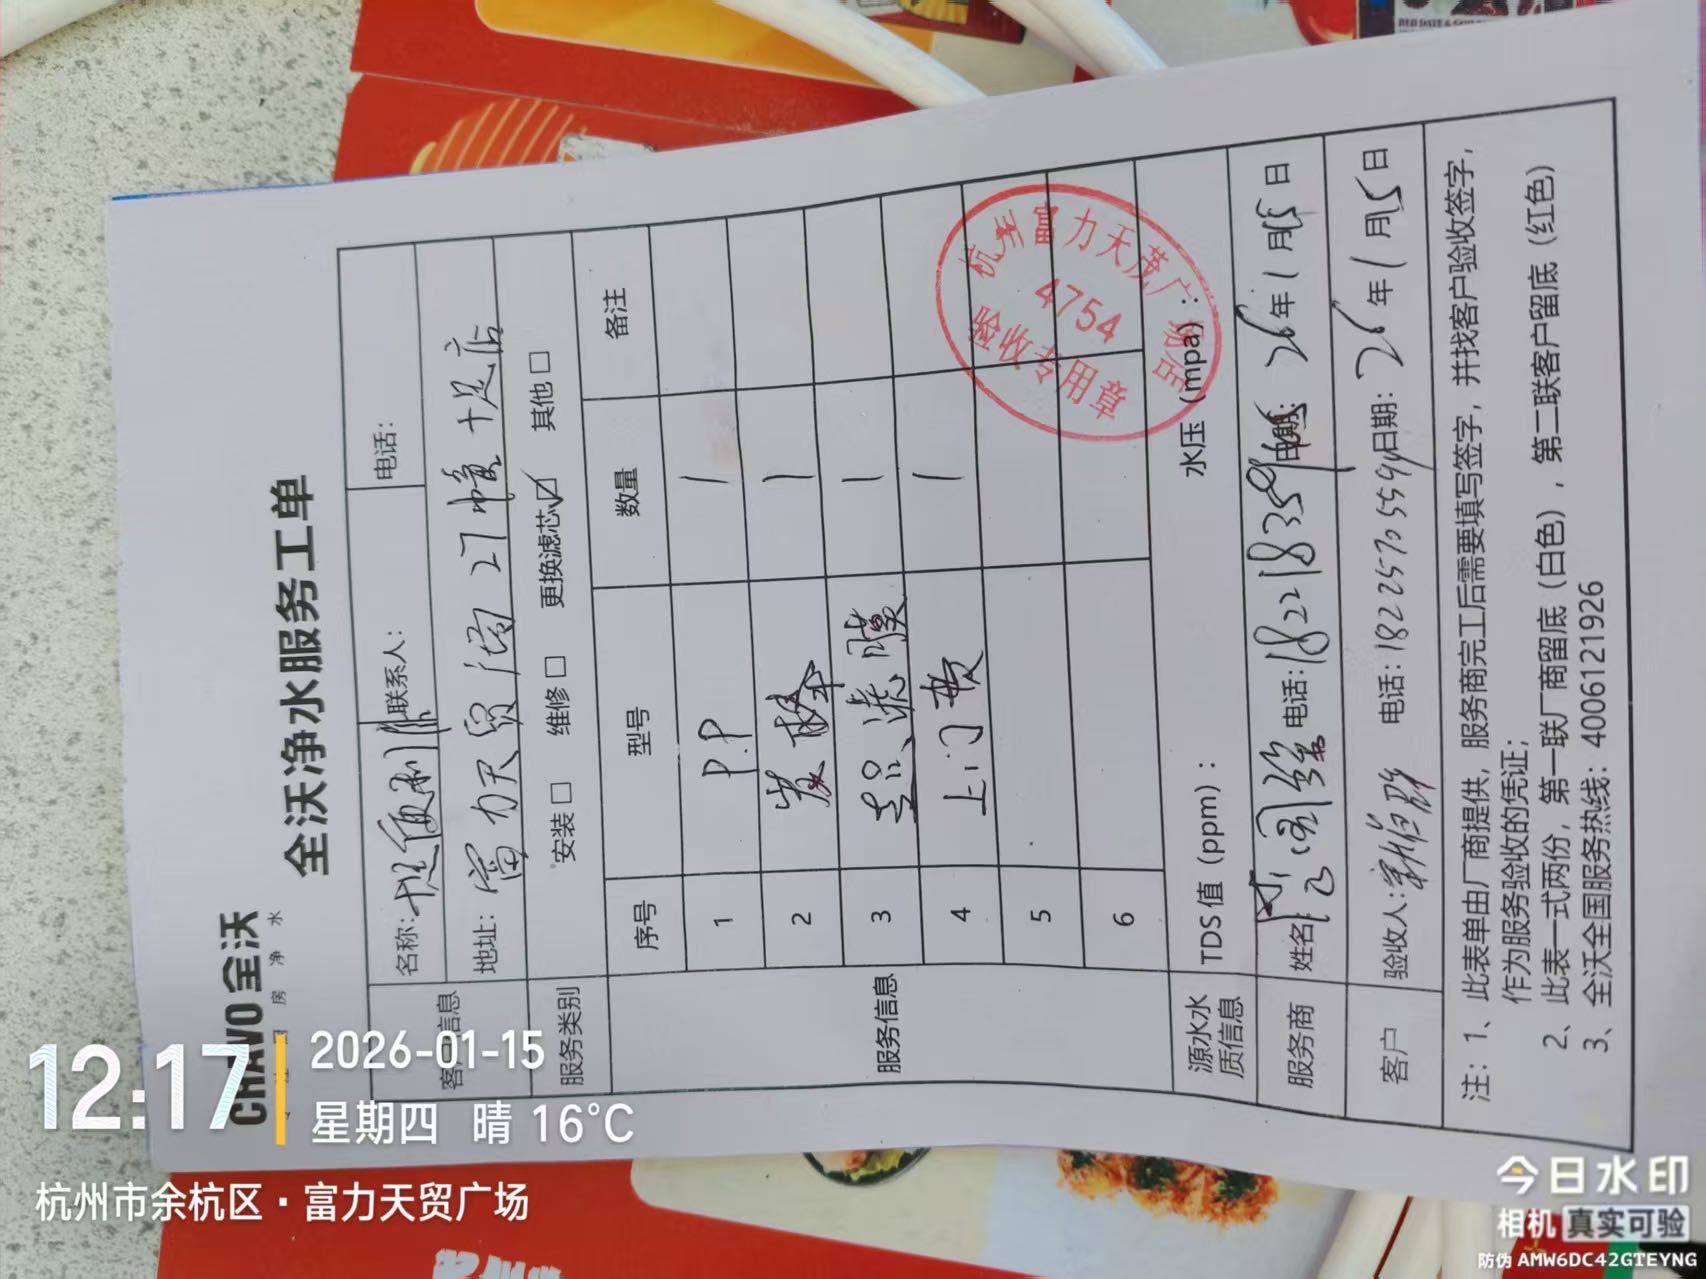 CHAVO 全沃
房 净 水
全沃净水服务工单
客户信息
名称:
联系人:
电话:
地址: 富力天贸 27幢
服务类别
安装 □ 维修 □ 更换滤芯 ☑ 其他 □
服务信息
序号 型号 数量 备注
1 P.P 1
2 炭棒 1
3 超滤膜 1
4 上门费 1
5
6
源水水质信息
TDS 值(ppm): 水压(mpa):
服务商 姓名 电话: 日期: 26年1月15日
客户 验收人: 电话: 18225705594 日期: 26年1月15日
注: 1、此表单由厂商提供,服务商完工后需要填写签字,并找客户验收签字,
作为服务验收的凭证;
2、此表一式两份,第一联厂商留底(白色),第二联客户留底(红色)
3、全沃全国服务热线: 4006121926
杭州富力天茂广场店
4754
验收专用章
12:17
2026-01-15
星期四 晴 16°C
杭州市余杭区·富力天贸广场
今日水印
相机 真实可验
防伪 AMW6DC42GTEYNG